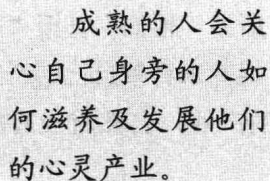 成熟的人会关
心自己身旁的人如
何滋养及发展他们
的心灵产业。